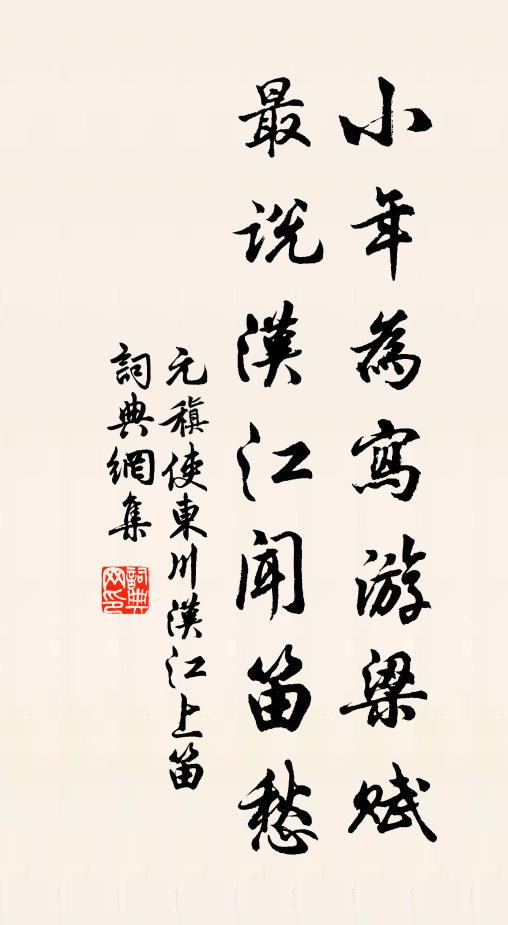 小年為寫游梁赋
最说漢江闻笛愁
元稹使東川漢江上笛
詞典網集
詞典網印